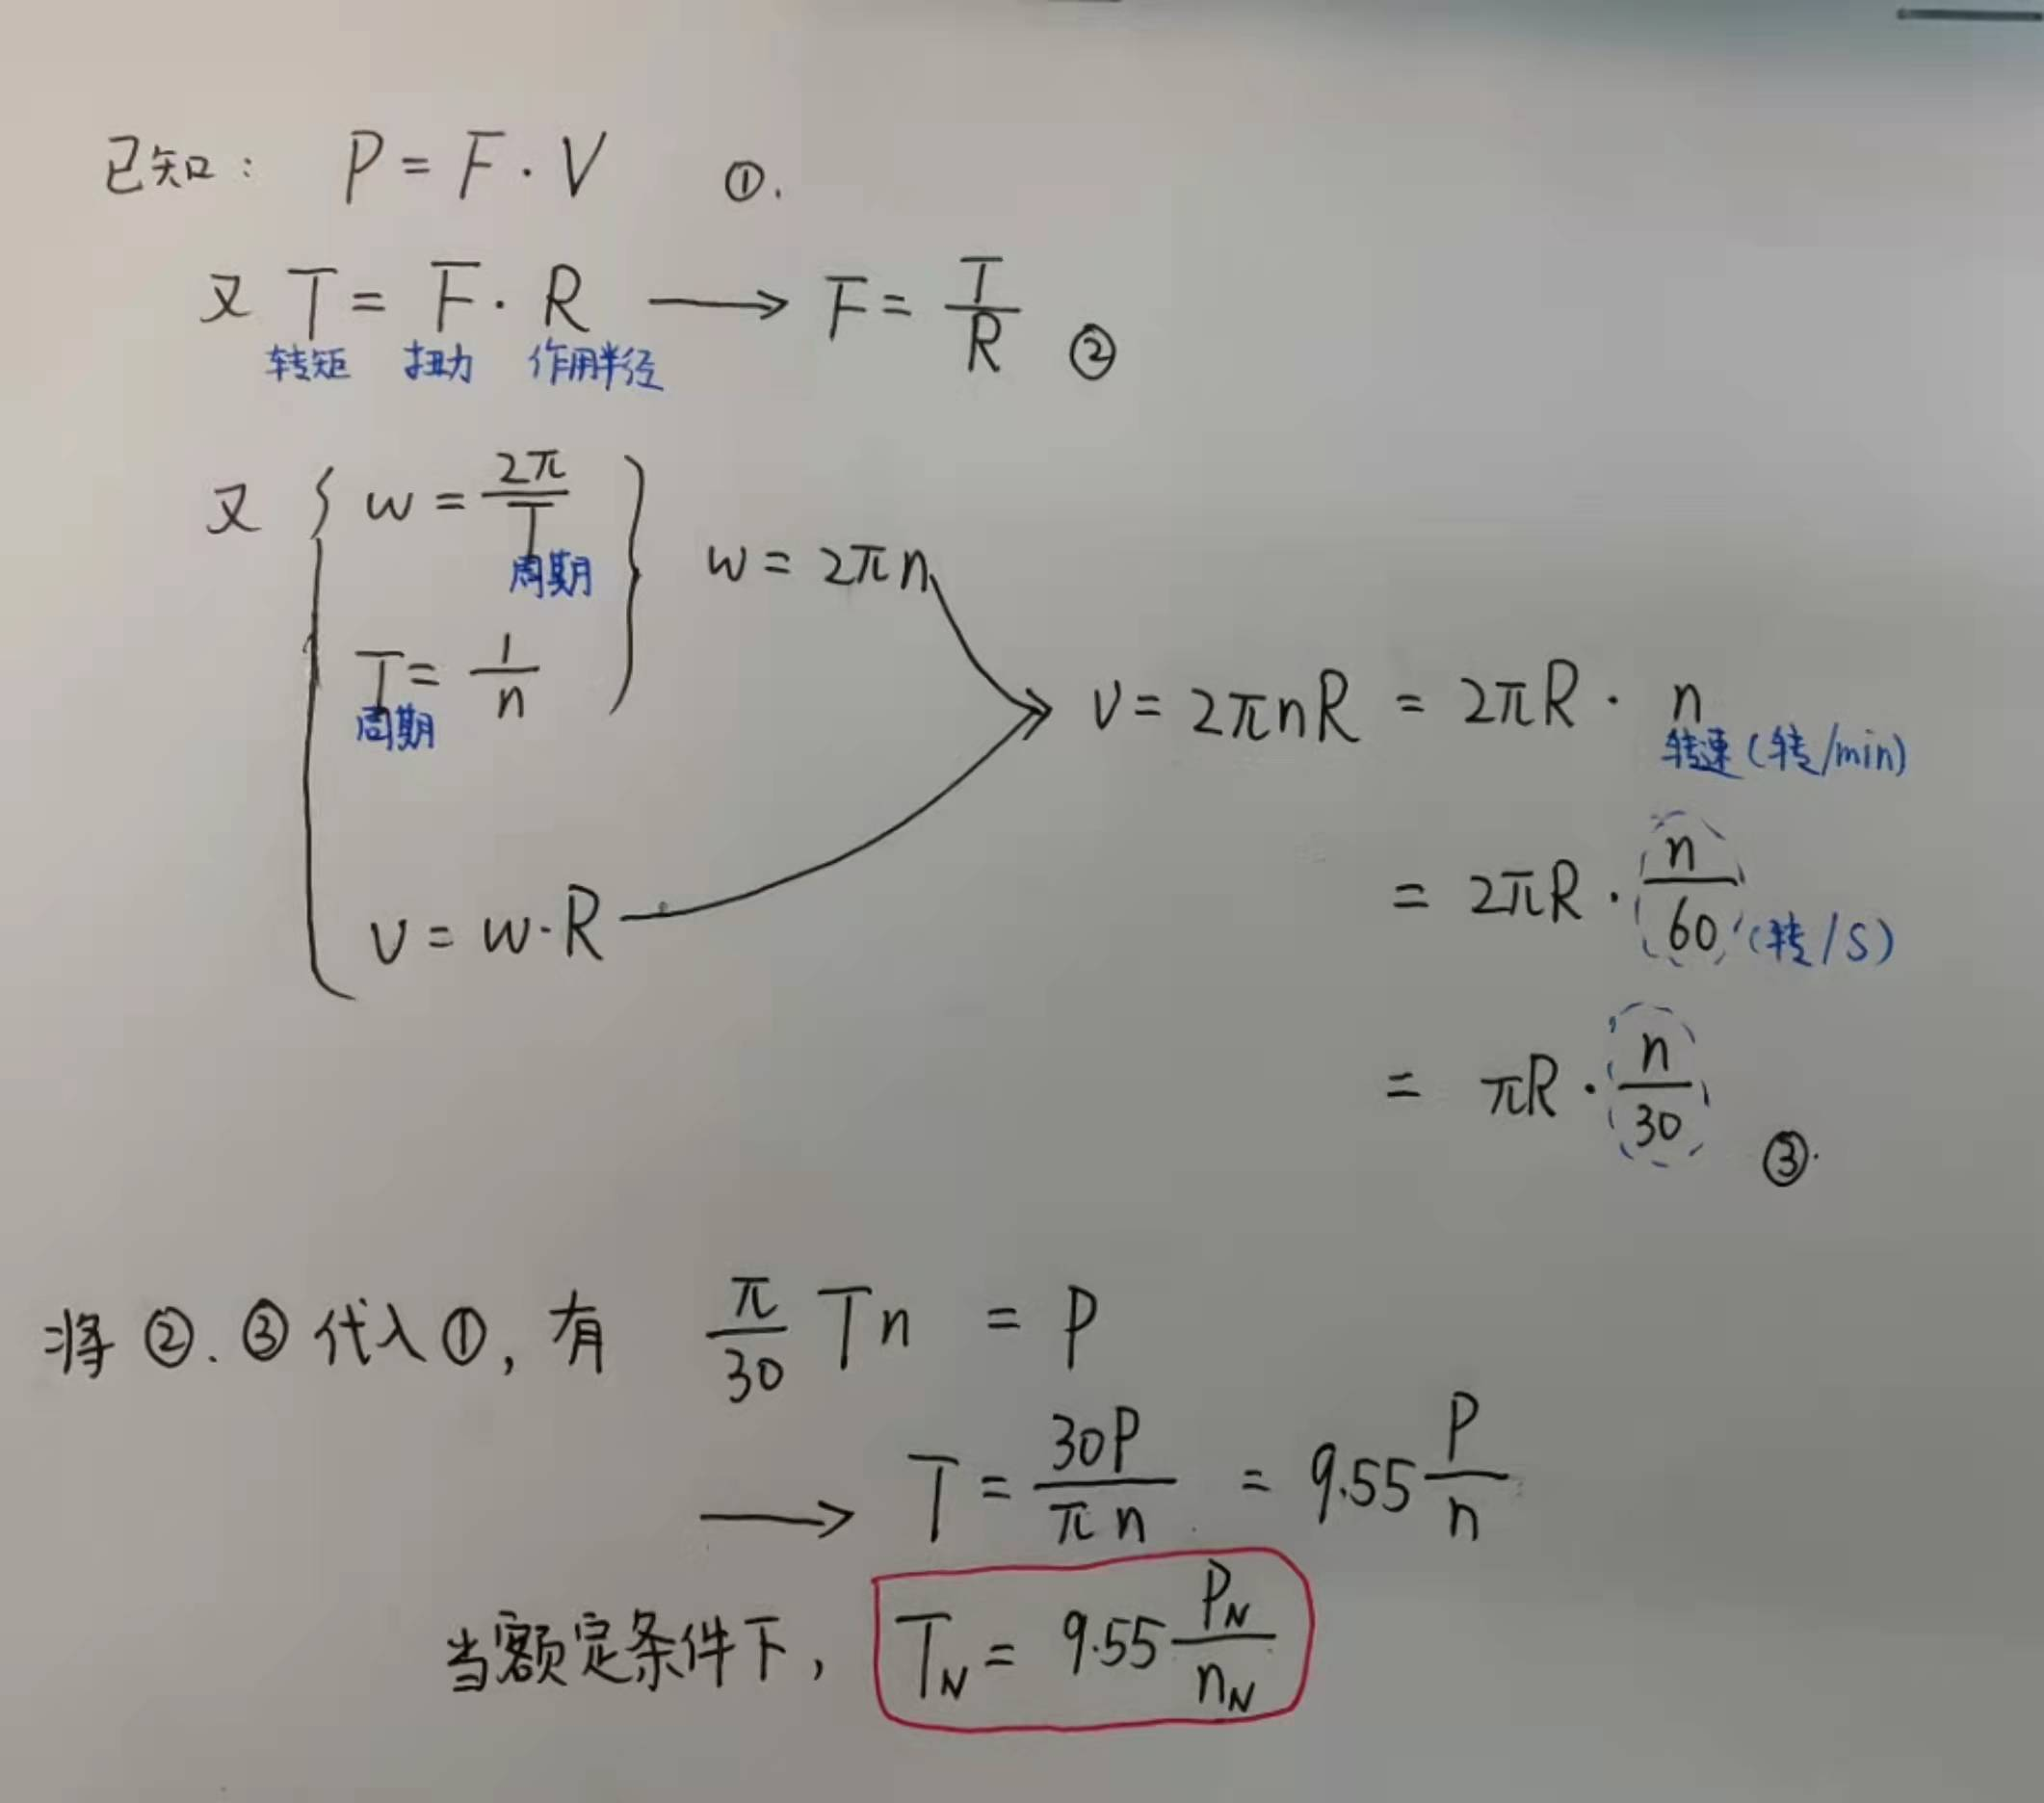 已知: P = F · V ①.
又 T = F · R ⟶ F = T/R ②
转矩 扭力 作用半径
又 { w = 2π/T } w = 2πn
周期
T = 1/n
周期
v = 2πnR = 2πR · n
转速 (转/min)
= 2πR · n/60 (转/s)
v = w · R
= πR · n/30 ③.
将 ②. ③ 代入 ①, 有 π/30 Tn = P
⟶ T = 30P/πn = 9.55 P/n
当额定条件下, T_N = 9.55 P_N/n_N